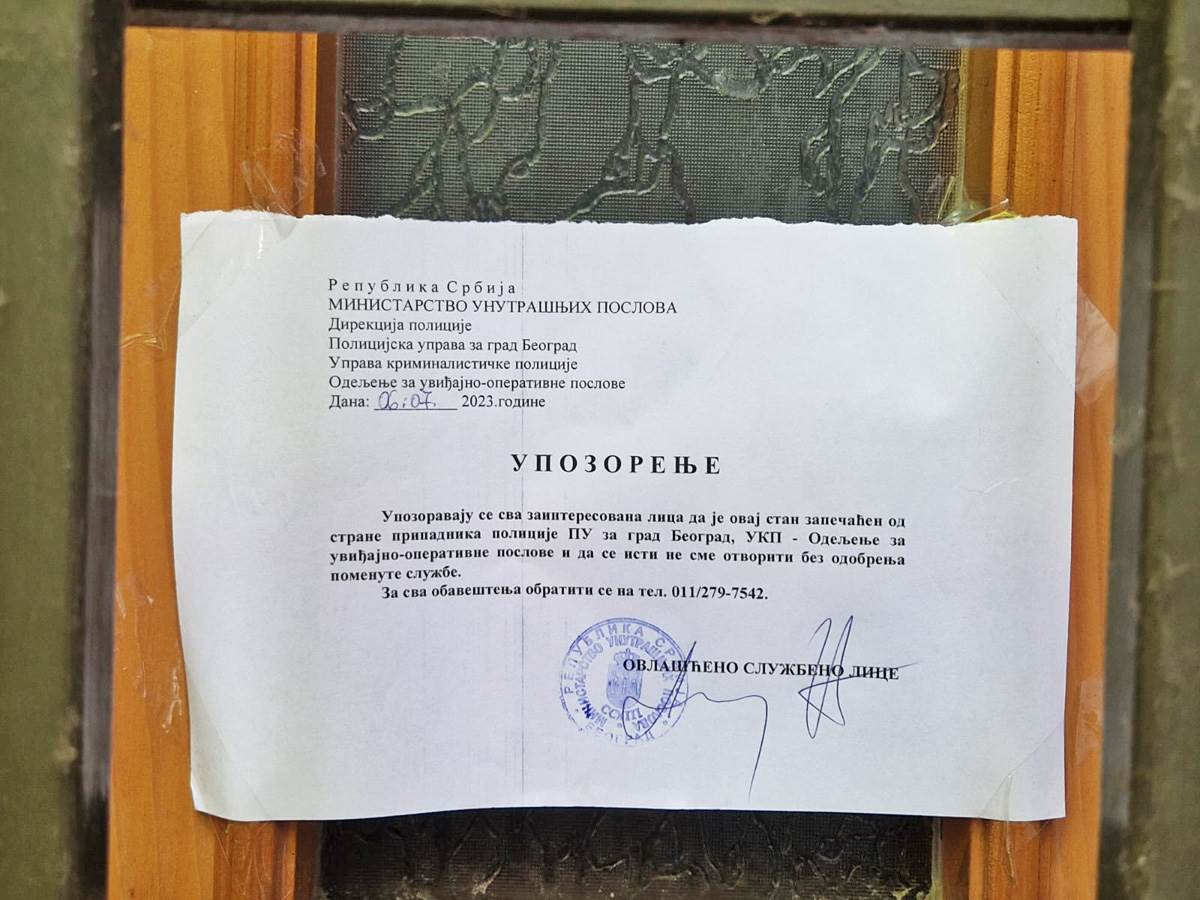 Република Србија
МИНИСТАРСТВО УНУТРАШЊИХ ПОСЛОВА
Дирекција полиције
Полицијска управа за град Београд
Управа криминалистичке полиције
Одељење за увиђајно-оперативне послове
Дана: 06.07. 2023.године
УПОЗОРЕЊЕ
Упозоравају се сва заинтересована лица да је овај стан запечаћен од
стране припадника полиције ПУ за град Београд, УКП - Одељење за
увиђајно-оперативне послове и да се исти не сме отворити без одобрења
поменуте службе.
За сва обавештења обратити се на тел. 011/279-7542.
ОВЛАШЋЕНО СЛУЖБЕНО ЛИЦЕ
РЕПУБЛИКА
МИНИСТАРСТВО УНУТРАШЊИХ ПОСЛОВА
БЕОГРАД